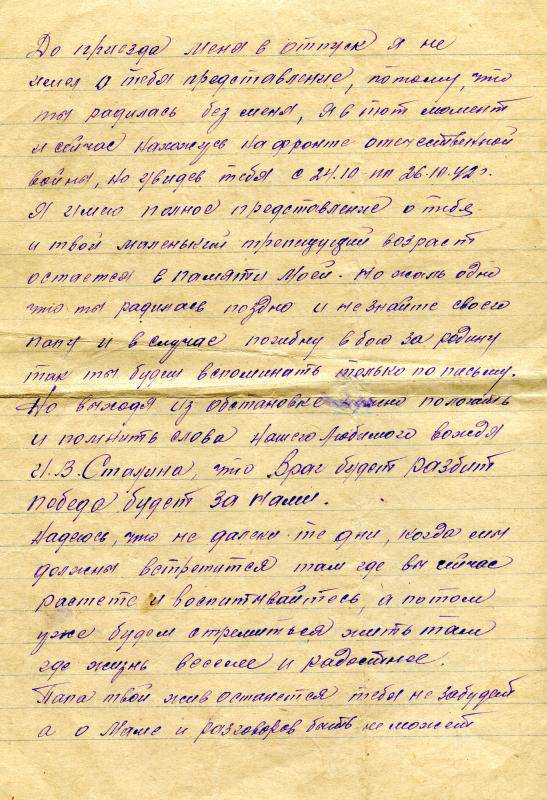 До приезда меня в отпуск я не
имел о тебя представление, потому, что
ты радилась без меня, я в тот момент
и сейчас нахожусь на фронте отечественной
войны, но увидев тебя с 24.10 по 26.10.42 г.
Я имею полное представление о тебя
и твой маленький трепидущий возраст
остается в памяти моей. Но жаль одно
что ты радилась поздно и незнайте своего
папу и в случае погибну в бою за родину
так ты будеш вспоминать только по письму.
Но выходя из обстановке пологать
и помнить слова нашего любимого вождя
И.В. Сталина, что Враг будет разбит
победа будет за нами.
Надеюсь, что не далеки те дни, когда мы
должны встретится там где вы сейчас
растете и воспитывайтесь, а потом
уже будем стремиться жить там
где жизнь веселее и радостное.
Папа твой жив останется тебя не забудет
а о Маме и разговоров быть не может